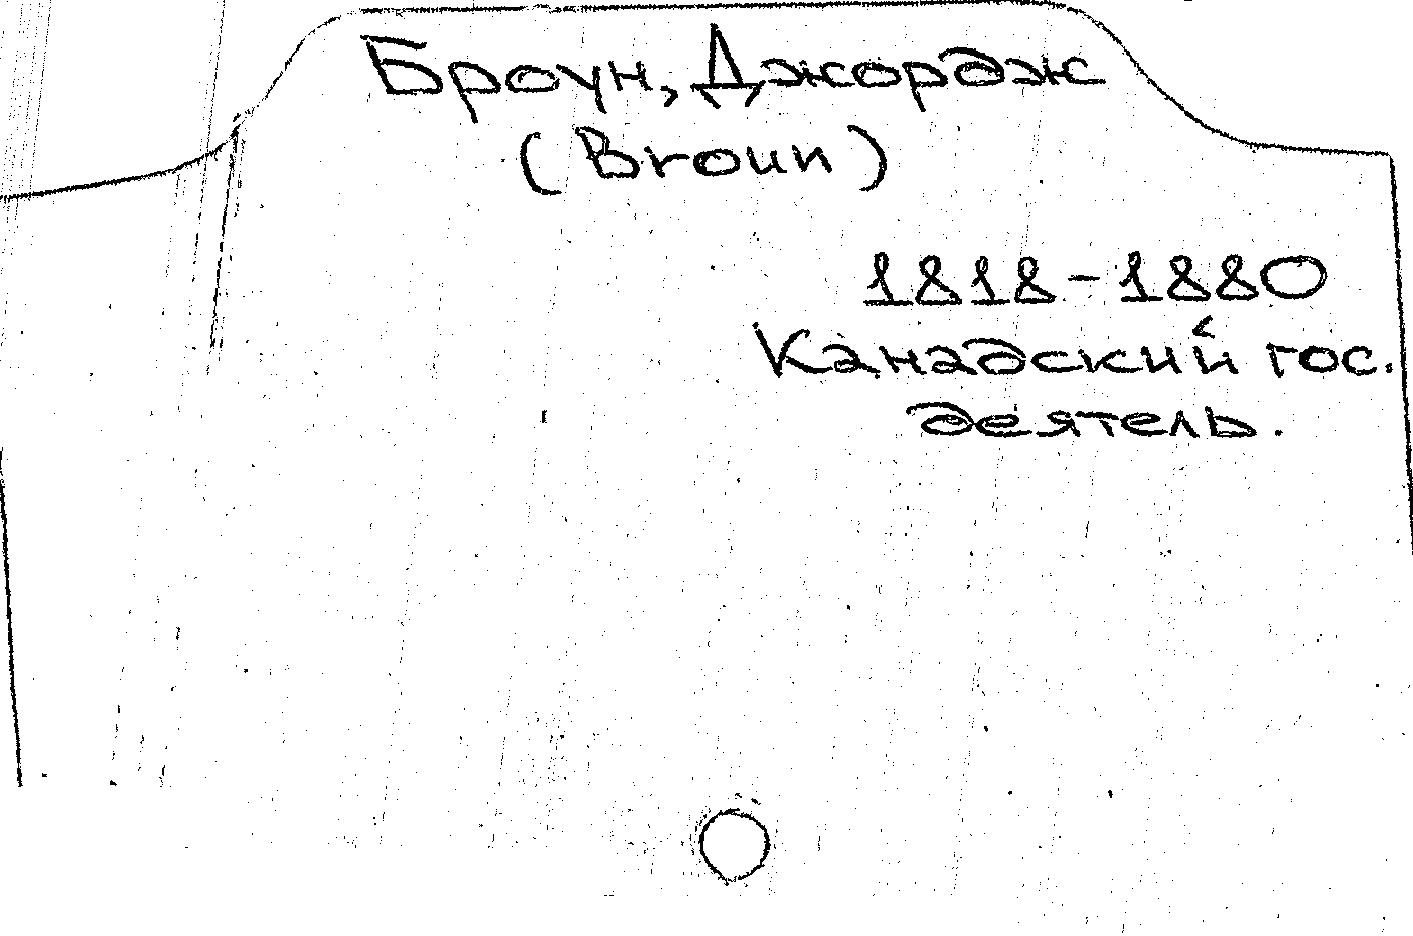 Броун, Джордж
(Broun)
1818-1880
Канадский гос.
деятель.